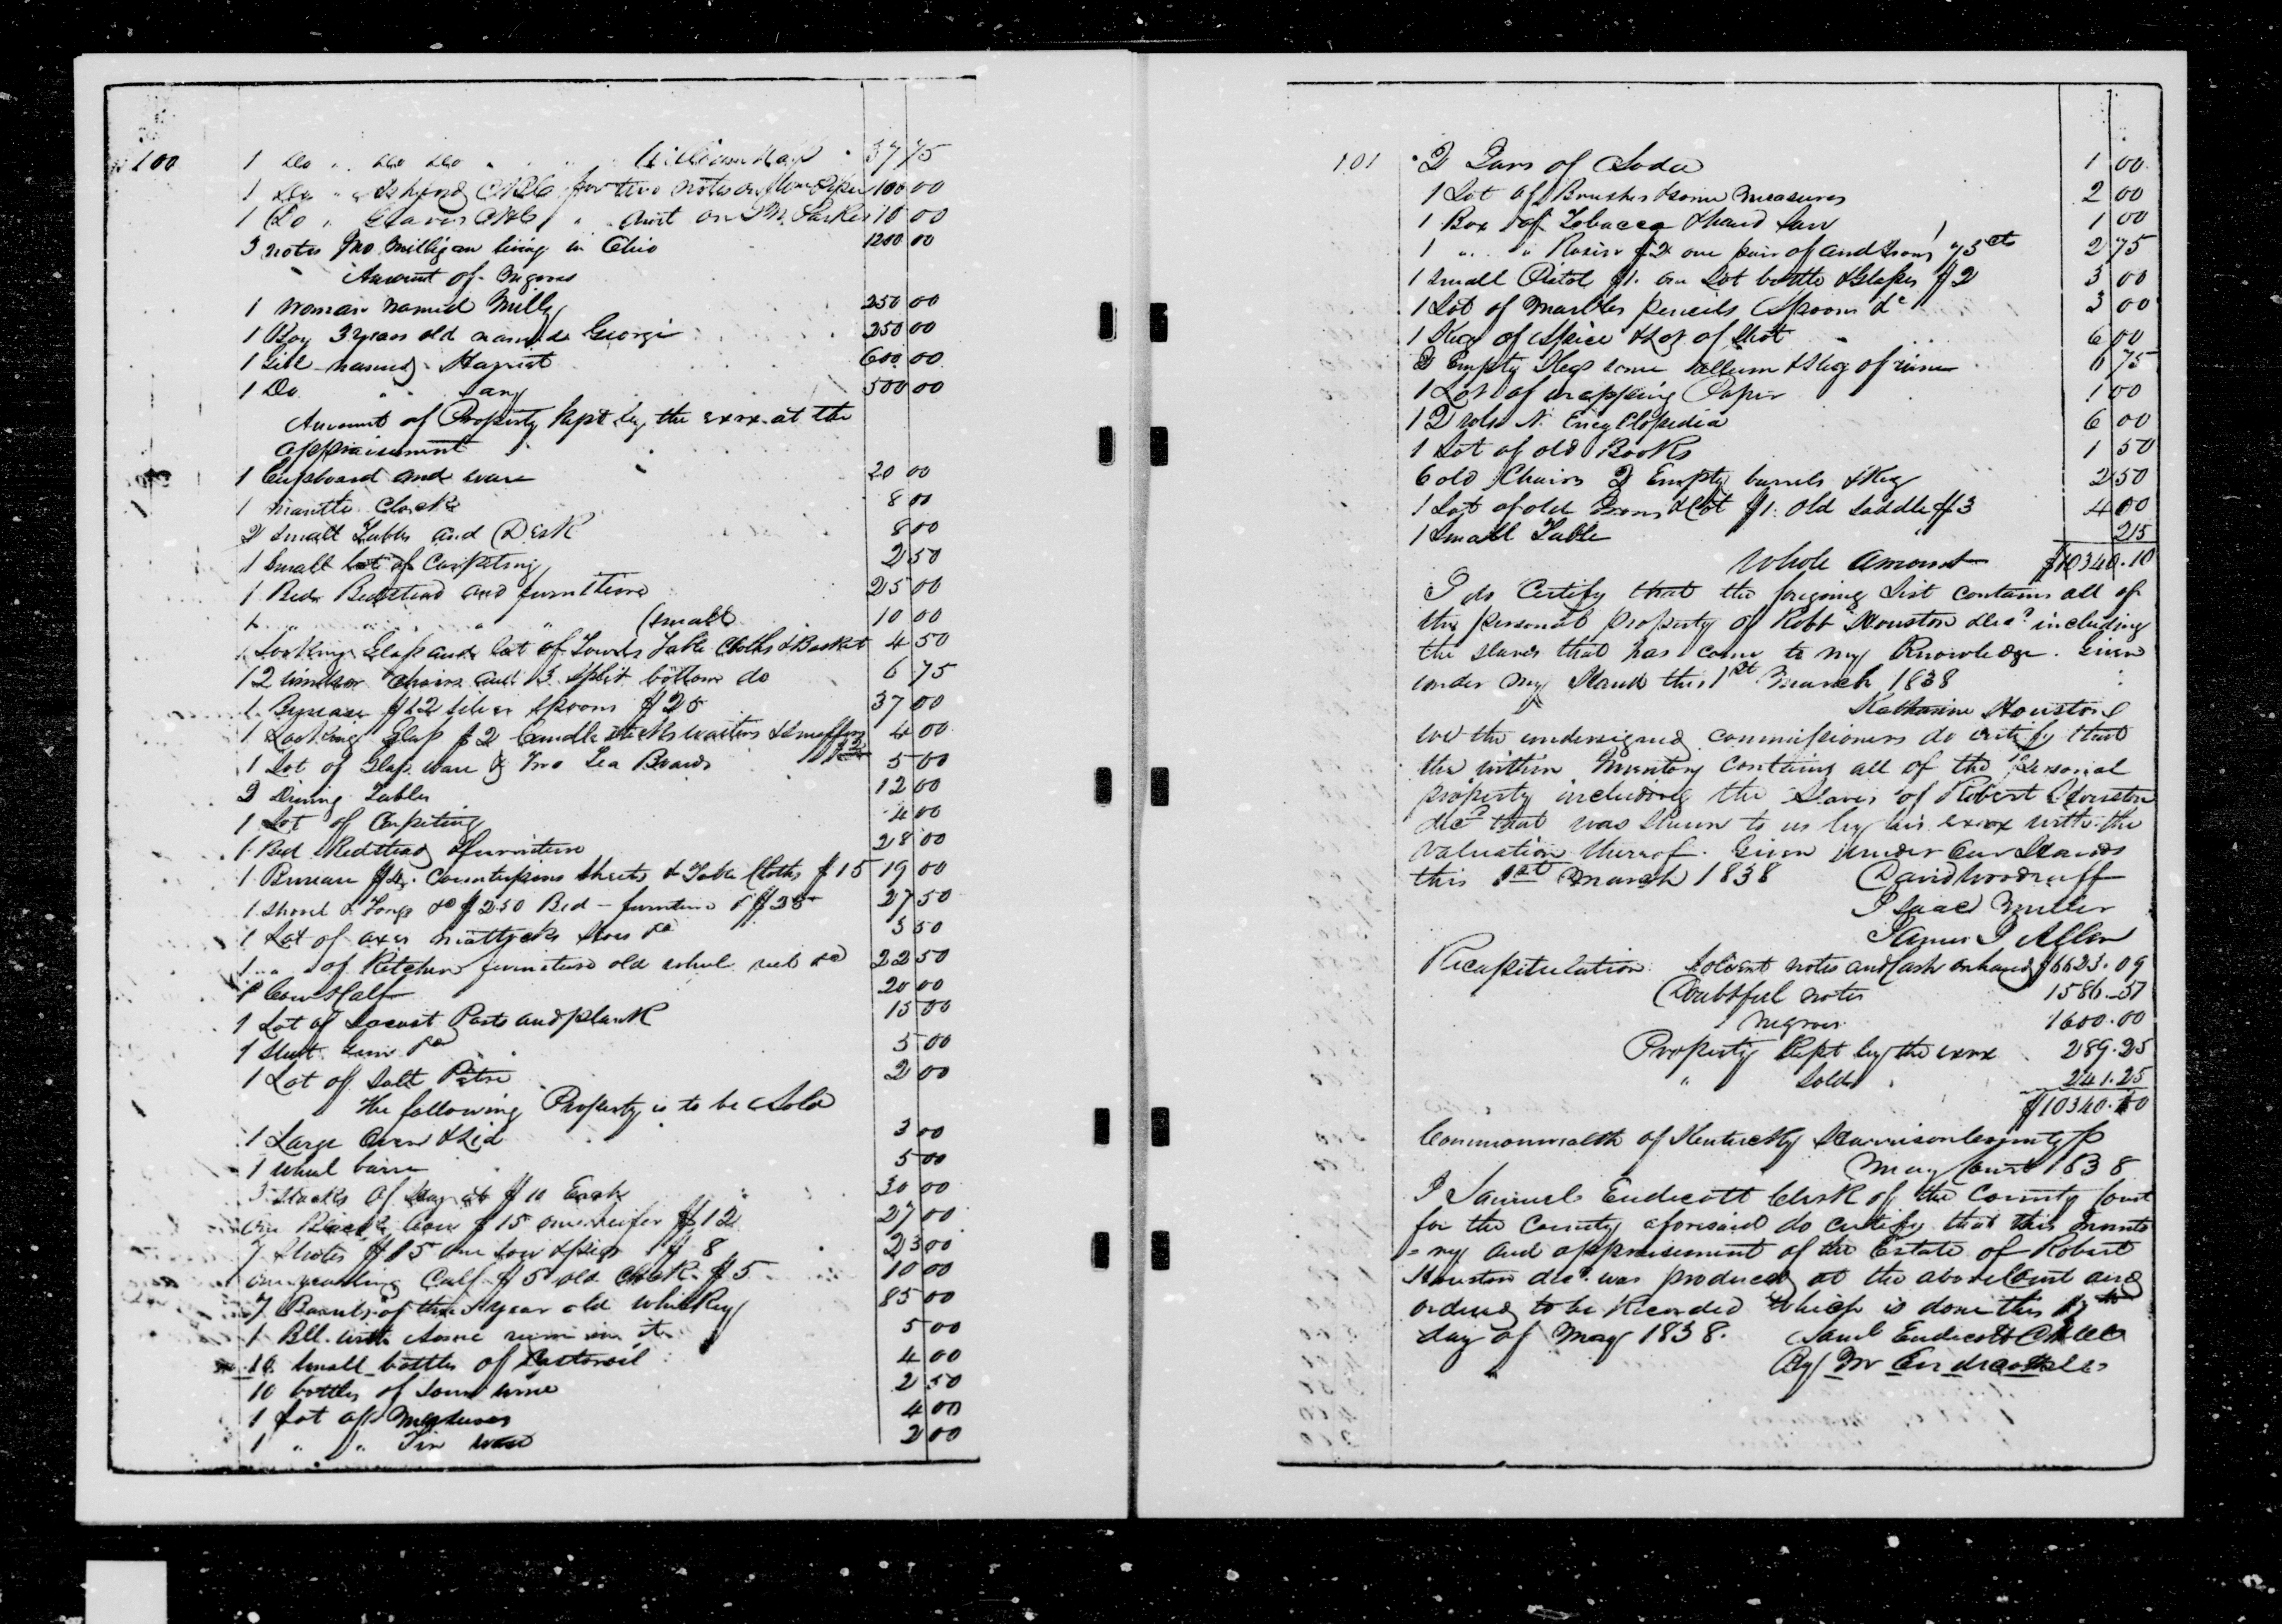 100
1 Do " Do Do " " " William 37 75
1 Do " C H C for two notes on 100 00
1 Do " C H C " Acct on Parker 10 00
3 notes Jno Milligan living in Ohio 1200 00
Amount of Negroes
1 Woman named Milly 250 00
1 Boy 3 years old named George 250 00
1 Girl named Harriet 600 00
1 Do " " 500 00
Amount of Property kept by the exrx at the
appraisement
1 Cupboard and ware 20 00
1 Mantle Clock 8 00
2 Small Tables and Desk 8 00
1 Small lot of Carpeting 2 50
1 Bed Bedstead and furniture 25 00
1 " " " " (small 10 00
1 Looking Glass and lot of Towels Table Cloths & Basket 4 50
12 Windsor chairs and 3 split bottom do 6 75
1 Bureau $12 Silver Spoons $25 37 00
1 Looking Glass $2 Candlesticks waiters & snuffers $2 4 00
1 Lot of Glass ware & Two Tea Boards 5 00
2 Dining Tables 12 00
1 Lot of Carpeting 4 00
1 Bed Bedstead & furniture 28 00
1 Bureau $4. Counterpains Sheets & Table Cloths $15 19 00
1 Shovel & Tongs &c $2 50 Bed furniture & $25 27 50
1 Lot of axes mattocks hoes &c 3 50
1 " " of Kitchen furniture old wheel reel &c 22 50
1 Cow & Calf 20 00
1 Lot of Locust Posts and plank 15 00
1 Shot Gun &c 5 00
1 Lot of Salt Petre 2 00
The following Property is to be Sold
1 Large Oven & Lid 3 00
1 Wheel barrow 5 00
3 Stacks of Hay at $10 Each 30 00
One Black Cow $15 one heifer $12 27 00
7 Shotes $15 one sow & pigs $8 23 00
one yearling Calf $5 old Clock $5 10 00
7 Barrels of three year old whiskey 85 00
1 Bll. with Some rum in it 5 00
10 Small bottles of Castor oil 4 00
10 bottles of Some wine 2 50
1 Lot of Measures 4 00
1 " " Tin ware 2 00
101
2 Jars of Soda 1 00
1 Lot of Brushes & some measures 2 00
1 Box of Tobacco & hand saw 1 00
1 " " Rosin $2 one pair of and Irons 75 cts 2 75
1 Small Pistol $1. one Lot bottles & Glasses $2 3 00
1 Lot of Marbles pencils Spoons &c 3 00
1 Keg of Spice & Lot of Shot 6 00
2 Empty Kegs some allum & Keg of 6 75
1 Lot of wrapping Paper 1 00
12 vols N. Encyclopedia 6 00
1 Lot of old Books 1 50
6 old Chairs 2 Empty barrels & Keg 2 50
1 Lot of old Irons & Cot $1. Old Saddle $3 4 00
1 Small Table 25
Whole Amount $10340.10
I do Certify that the foregoing List contains all of
the personal property of Robt Houston decd including
the slaves that has come to my Knowledge. Given
under my Hand this 1st March 1838
Katharine Houston
We the undersigned commissioners do certify that
the within Inventory contains all of the personal
property including the slaves of Robert Houston
decd that was shewn to us by his exrx with the
valuation thereof. Given under our Hands
this 1st March 1838 David Woodruff
Isaac Miller
James J Allen
Recapitulation. Solvent notes and Cash on hand $6623.09
Doubtful notes 1586.51
Negroes 1600.00
Property Kept by the exrx 289.25
" Sold 241.25
$10340.10
Commonwealth of Kentucky Harrison County Sc
May Court 1838
I Samuel Endicott Clerk of the County Court
for the County aforesaid do certify that this Invento
=ry and appraisement of the Estate of Robert
Houston decd. was produced at the above Court and
ordered to be Recorded which is done this 17th
day of May 1838. Saml Endicott C H C C
By M Endicott